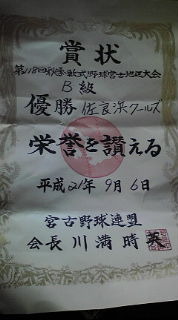 賞状
第118回秋季軟式野球宮古地区大会
B級
優勝 佐良浜クールズ
栄誉を讃える
平成21年9月6日
宮古野球連盟
会長 川満時英